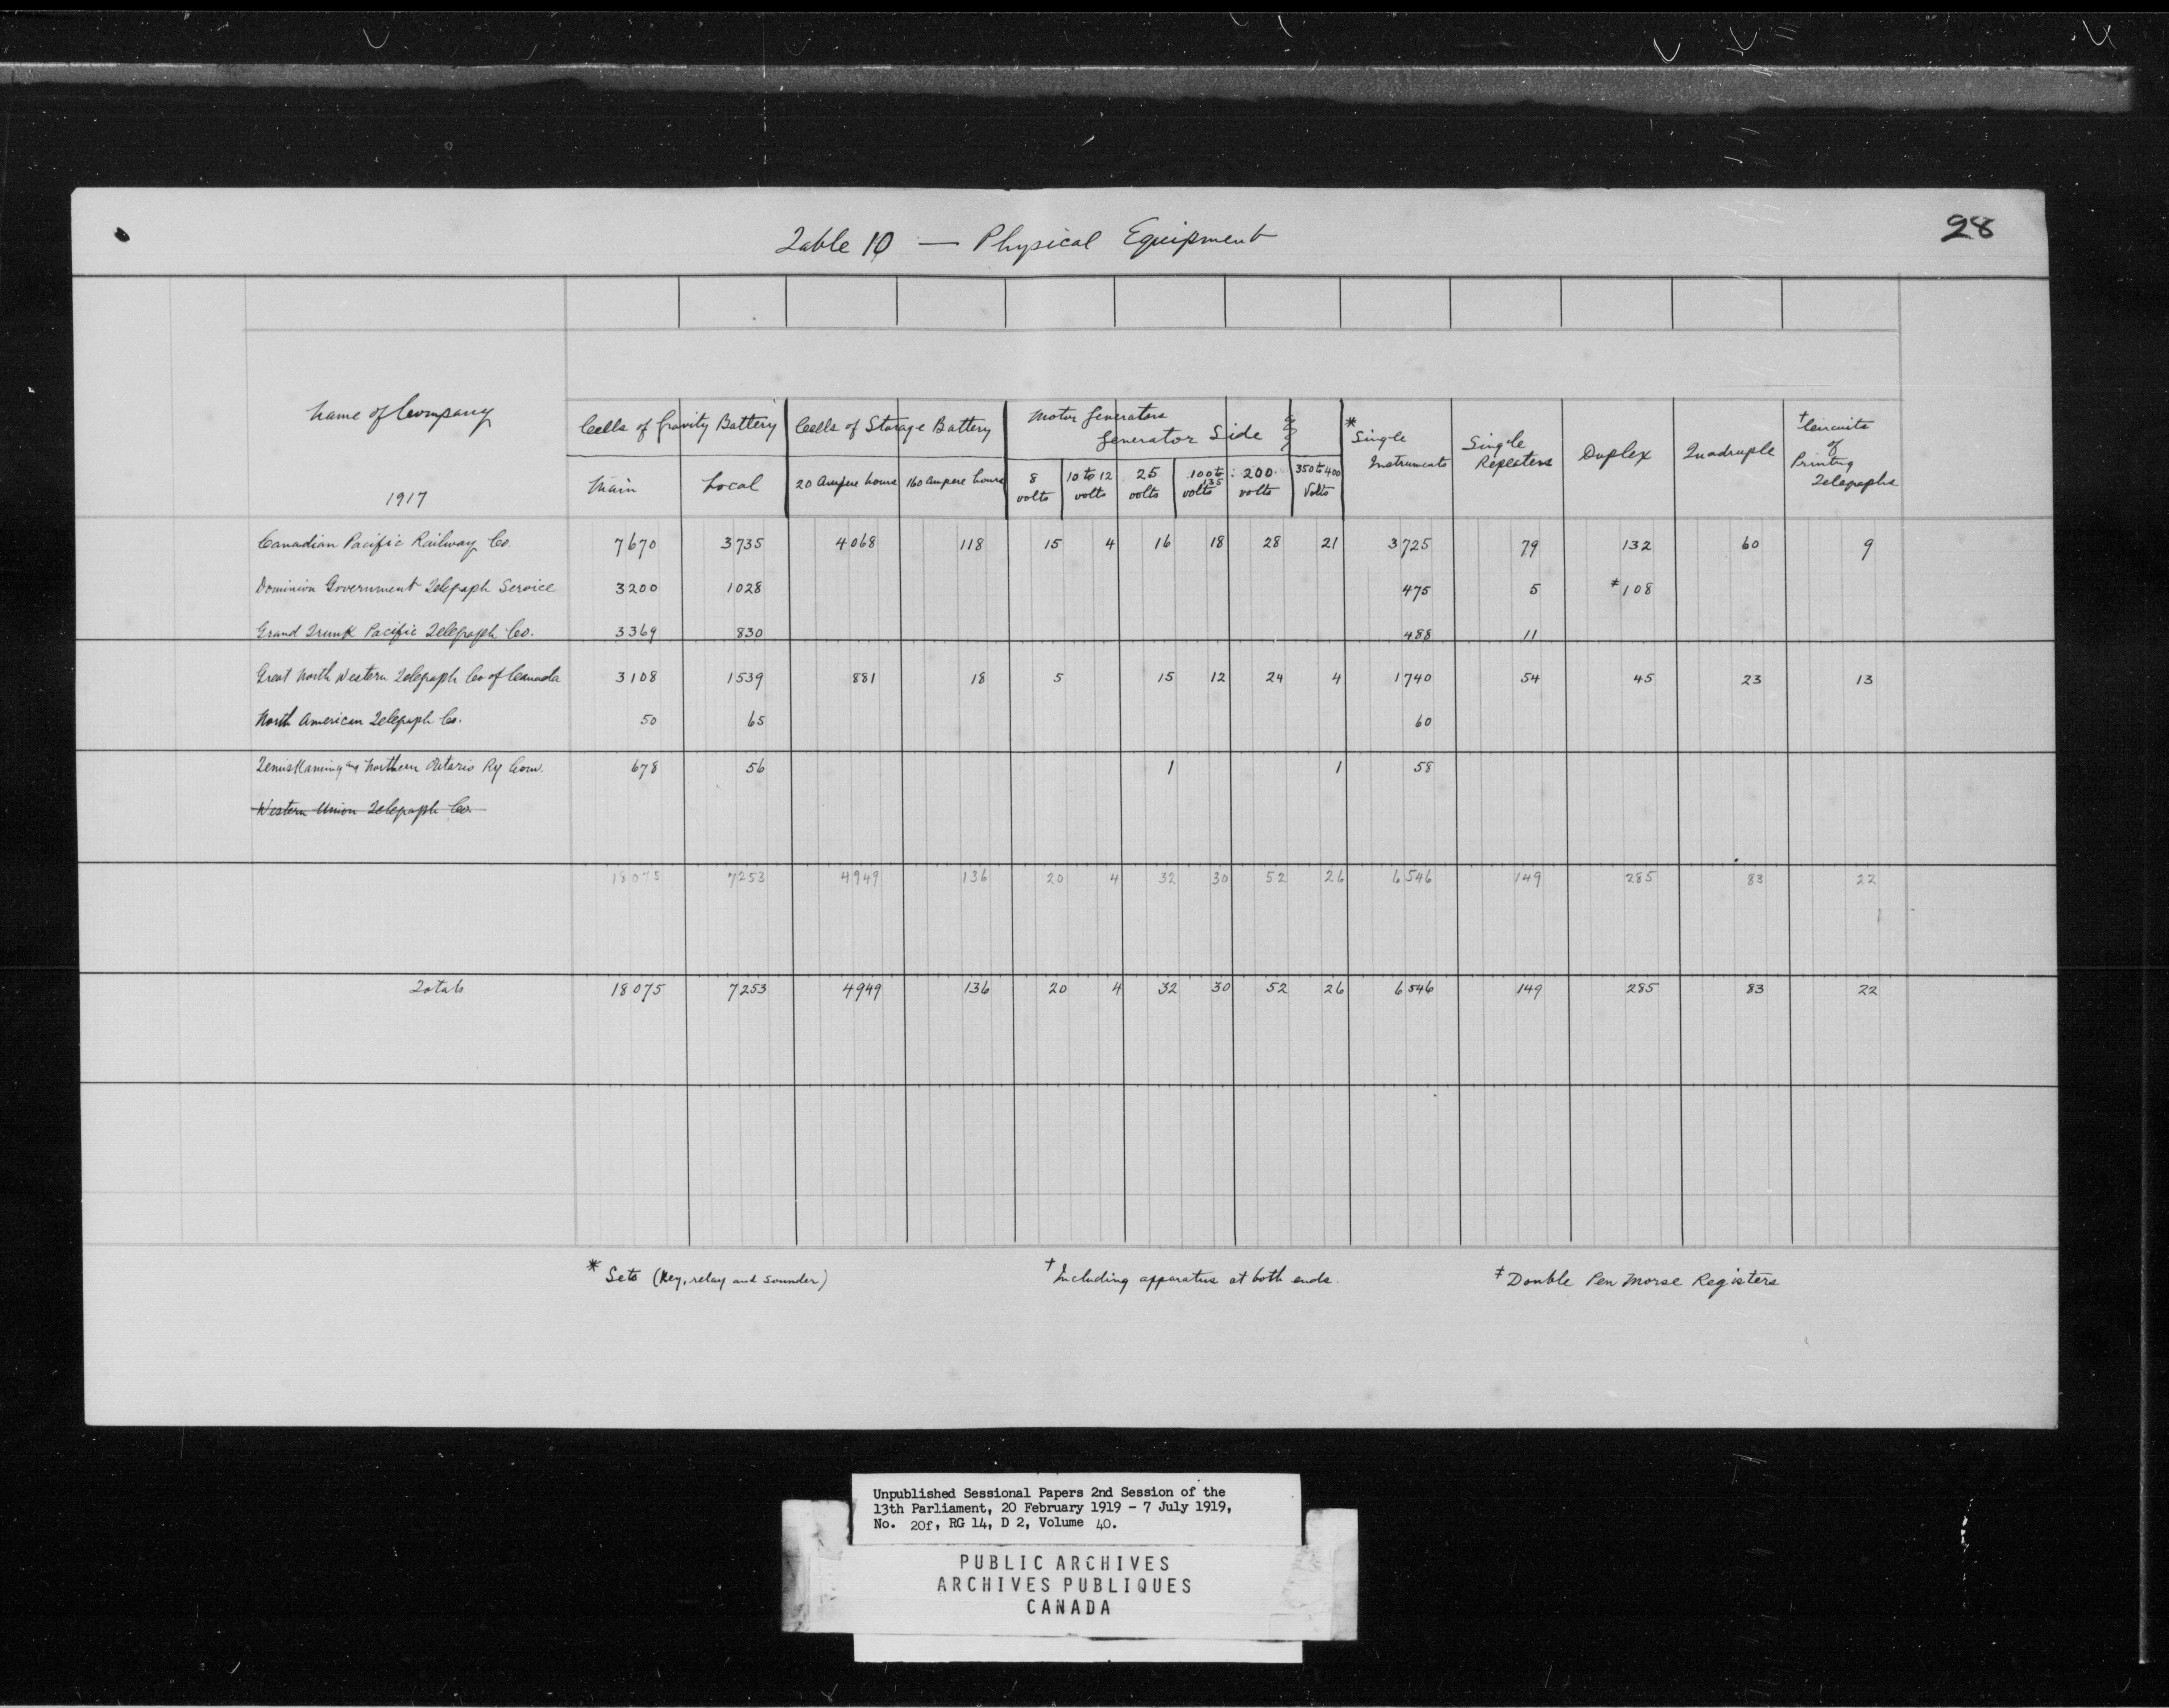 28
Table 10 — Physical Equipment
Name of Company
1917
Cells of Gravity Battery
Main
Local
Cells of Storage Battery
20 Ampere hours
160 Ampere hours
Motor Generators
Generator Side
8 volts
10 to 12 volts
25 volts
100 to 135 volts
200 volts
350 to 400 Volts
* Single Instruments
Single Repeaters
Duplex
Quadruple
† Circuits of Printing Telegraphs
Canadian Pacific Railway Co. 7670 3735 4068 118 15 4 16 18 28 21 3725 79 132 60 9
Dominion Government Telegraph Service 3200 1028 475 5 ‡108
Grand Trunk Pacific Telegraph Co. 3369 830 488 11
Great North Western Telegraph Co of Canada 3108 1539 881 18 5 15 12 24 4 1740 54 45 23 13
North American Telegraph Co. 50 65 60
Temiskaming and Northern Ontario Ry Com. 678 56 1 1 58
Western Union Telegraph Co.
18075 7253 4949 136 20 4 32 30 52 26 6546 149 285 83 22
Totals 18075 7253 4949 136 20 4 32 30 52 26 6546 149 285 83 22
* Sets (Key, relay and sounder)
† Including apparatus at both ends.
‡ Double Pen Morse Registers
Unpublished Sessional Papers 2nd Session of the
13th Parliament, 20 February 1919 - 7 July 1919,
No. 20f, RG 14, D 2, Volume 40.
PUBLIC ARCHIVES
ARCHIVES PUBLIQUES
CANADA